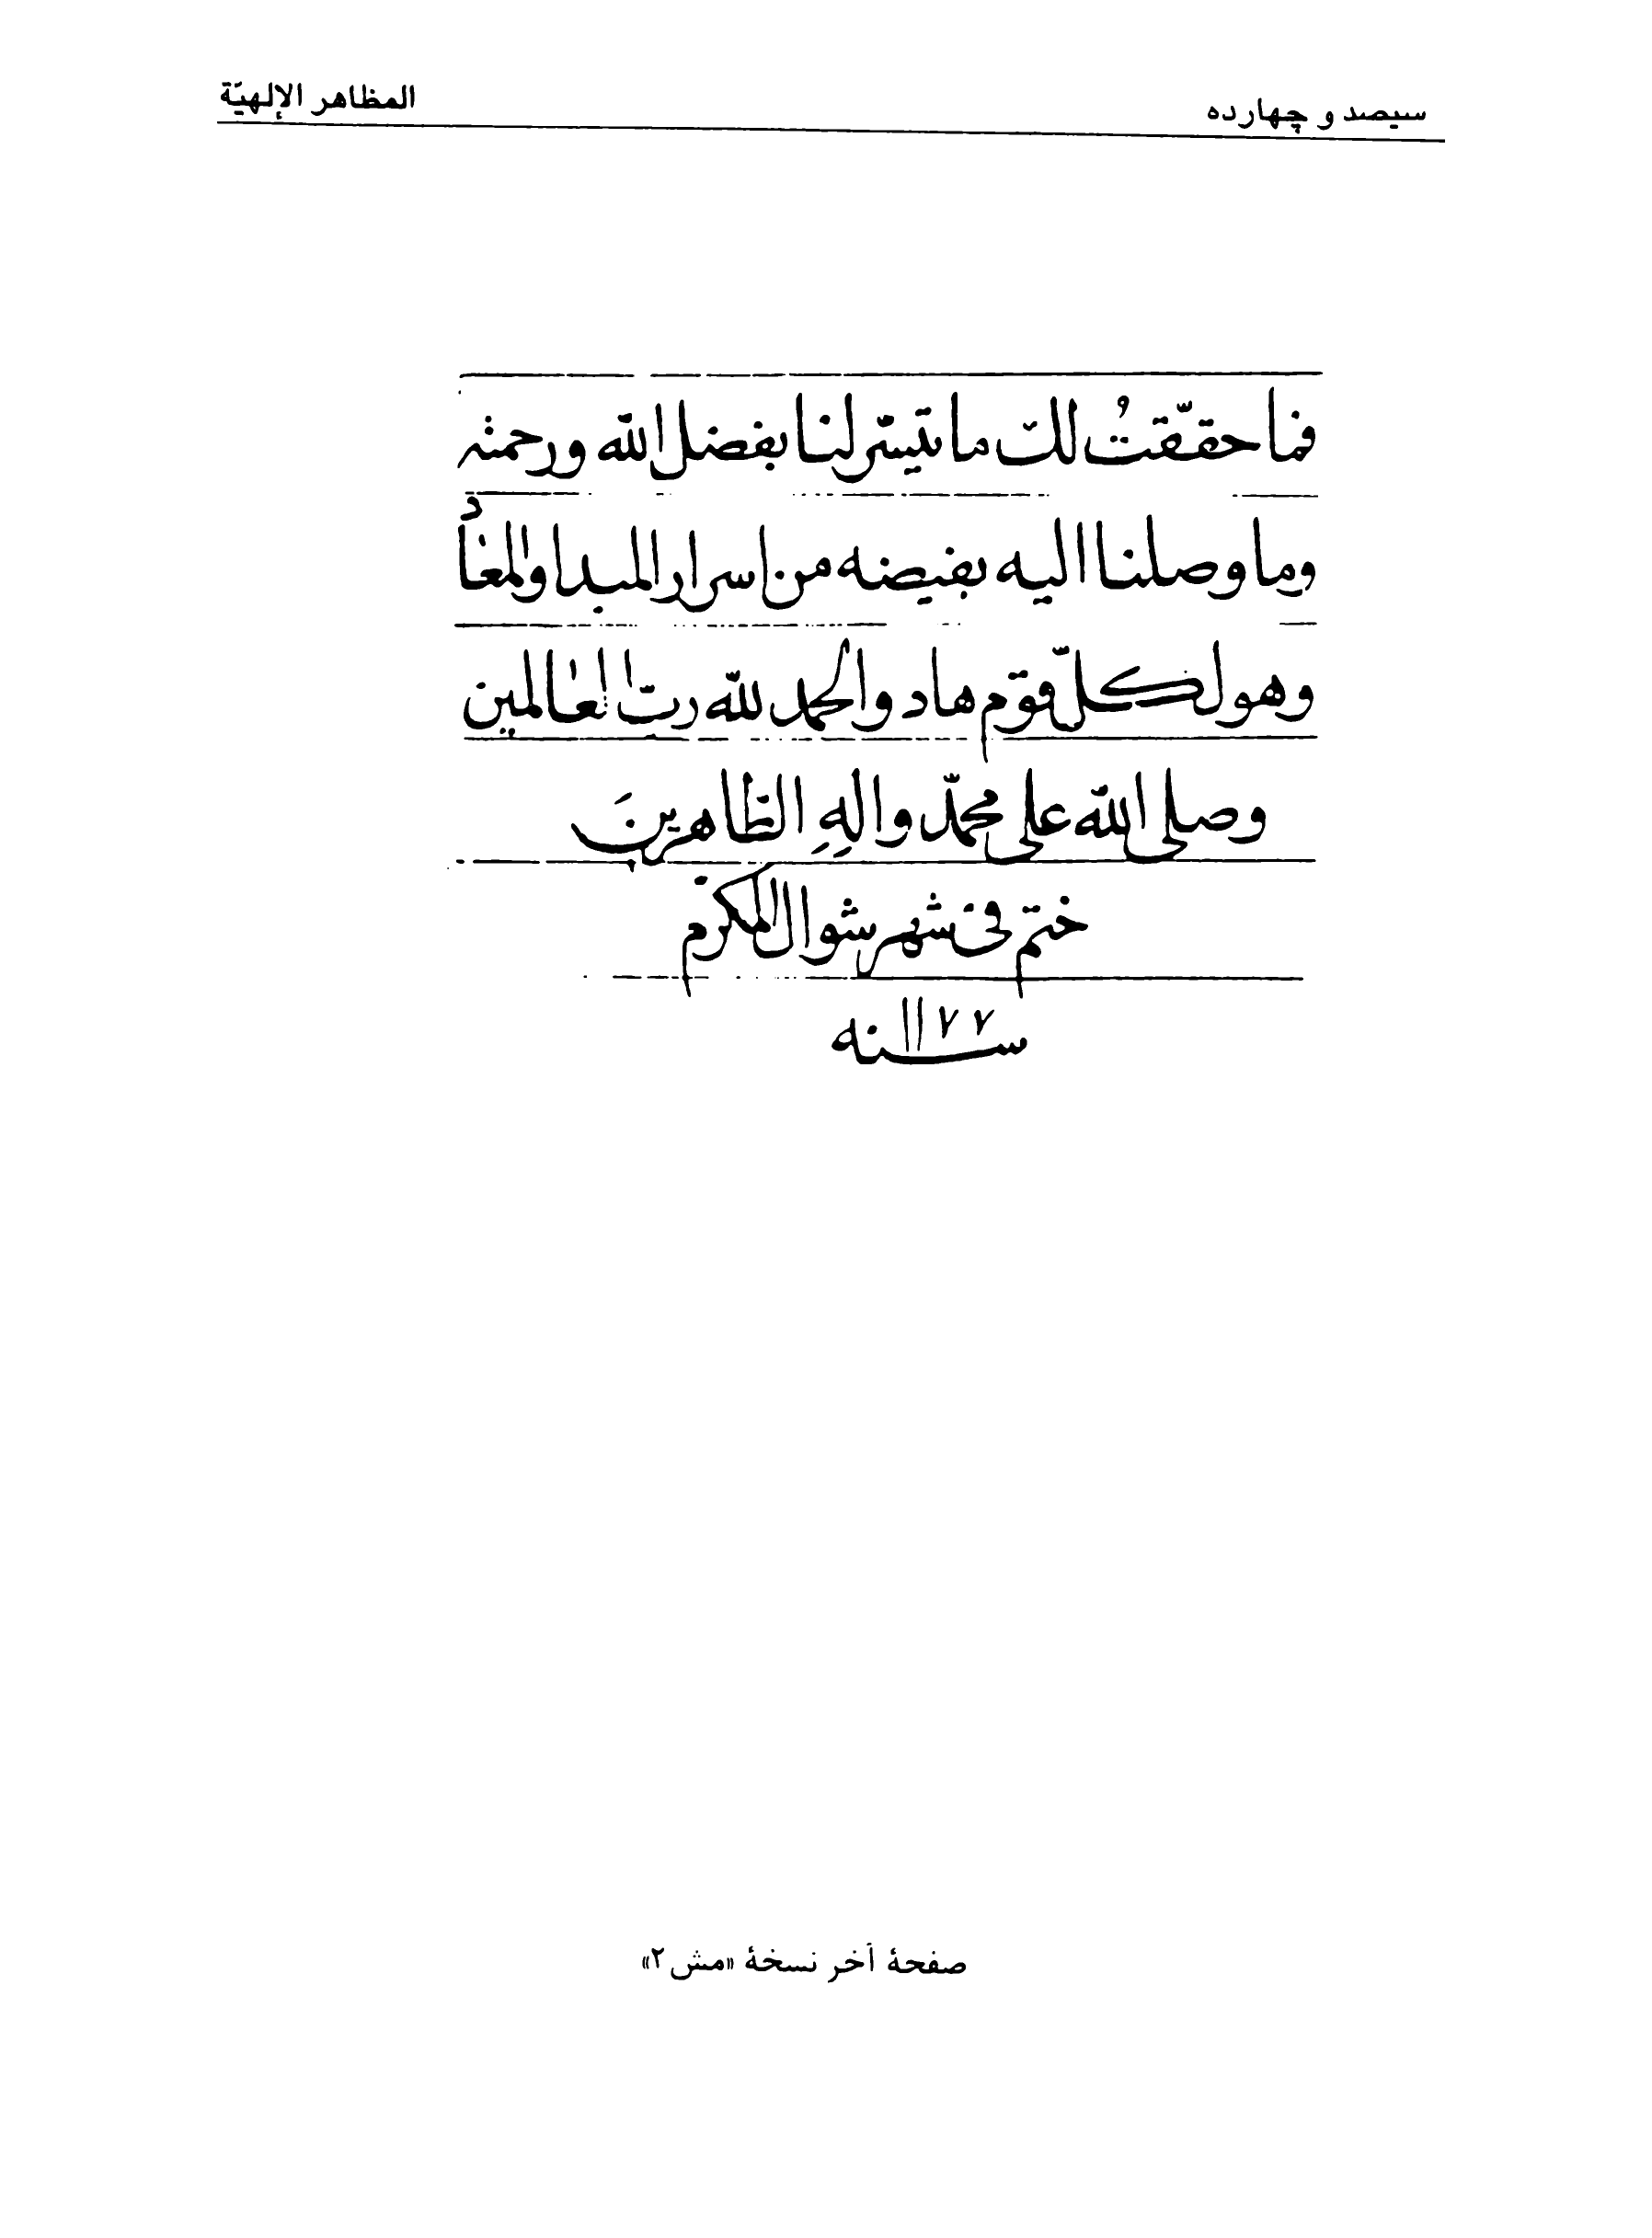 سیصد و چهارده
المظاهر الإلهیّة
فما حقّقتُ لك ما تیسّر لنا بفضل الله ورحمته
وما وصلنا الیه بفیضه من اسرار المبدا والمعاد
وهو لكلّ قوم هاد والحمد لله ربّ العالمین
وصلی الله علی محمّد والِهِ الطّاهرینَ
ختم فی شهر شوال المکرّم
سنه ١١٧٧
صفحهٔ آخر نسخهٔ «مش ٢»